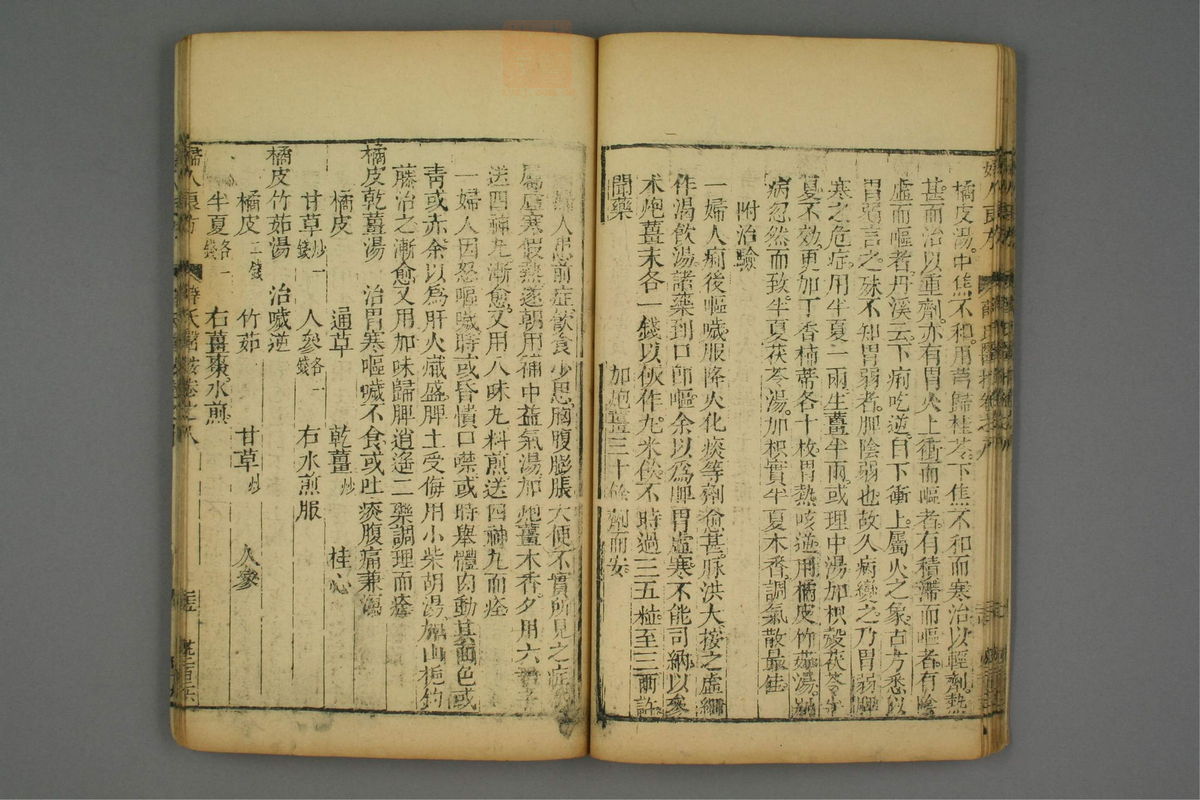 橘皮湯中焦不和用芎歸桂苓下焦不和而寒治以輕劑熱
甚而治以重劑亦有胃火上衝而嘔者有積滯而嘔者有陰
虛而嘔者丹溪云下痢吃逆曰下衝上屬火之象古方悉以
胃弱言之殊不知胃弱者脾陰弱也故久病變之乃胃弱脾
寒之危症用半夏二兩生薑半兩或理中湯加枳殼茯苓半
夏不效更加丁香柿蒂各十枚胃熱咳逆用橘皮竹茹湯
病忽然而致半夏茯苓湯加枳實半夏木香調氣散最佳
附治驗
一婦人痢後嘔噦服降火化痰等劑愈甚脉洪大按之虛細
作渴飲湯諸藥到口即嘔余以為脾胃虛寒不能司納以參
朮炮薑末各一錢以飲作丸米飲不時過三五粒至三兩許
聞藥 加炮薑三十餘劑而安
婦人患前症飲食少思胸腹膨脹大便不實所見之症
屬虛寒假熱遂朝用補中益氣湯加炮薑木香夕用六君子
送四神丸漸愈又用八味丸料煎送四神丸而痊
一婦人因怒嘔噦時或昏憒口噤或時舉體肉動其面色或
青或赤余以為肝火熾盛脾土受侮用小柴胡湯加山梔鈎
藤治之漸愈又用加味歸脾逍遙二藥調理而痊
橘皮乾薑湯 治胃寒嘔噦不食或吐痰腹痛兼瀉
橘皮 通草 乾薑炒 桂心
甘草炒一錢 人參各一錢 右水煎服
橘皮竹茹湯 治噦逆
橘皮二錢 竹茹 甘草炒 人參
半夏各一錢 右薑棗水煎
婦人良方